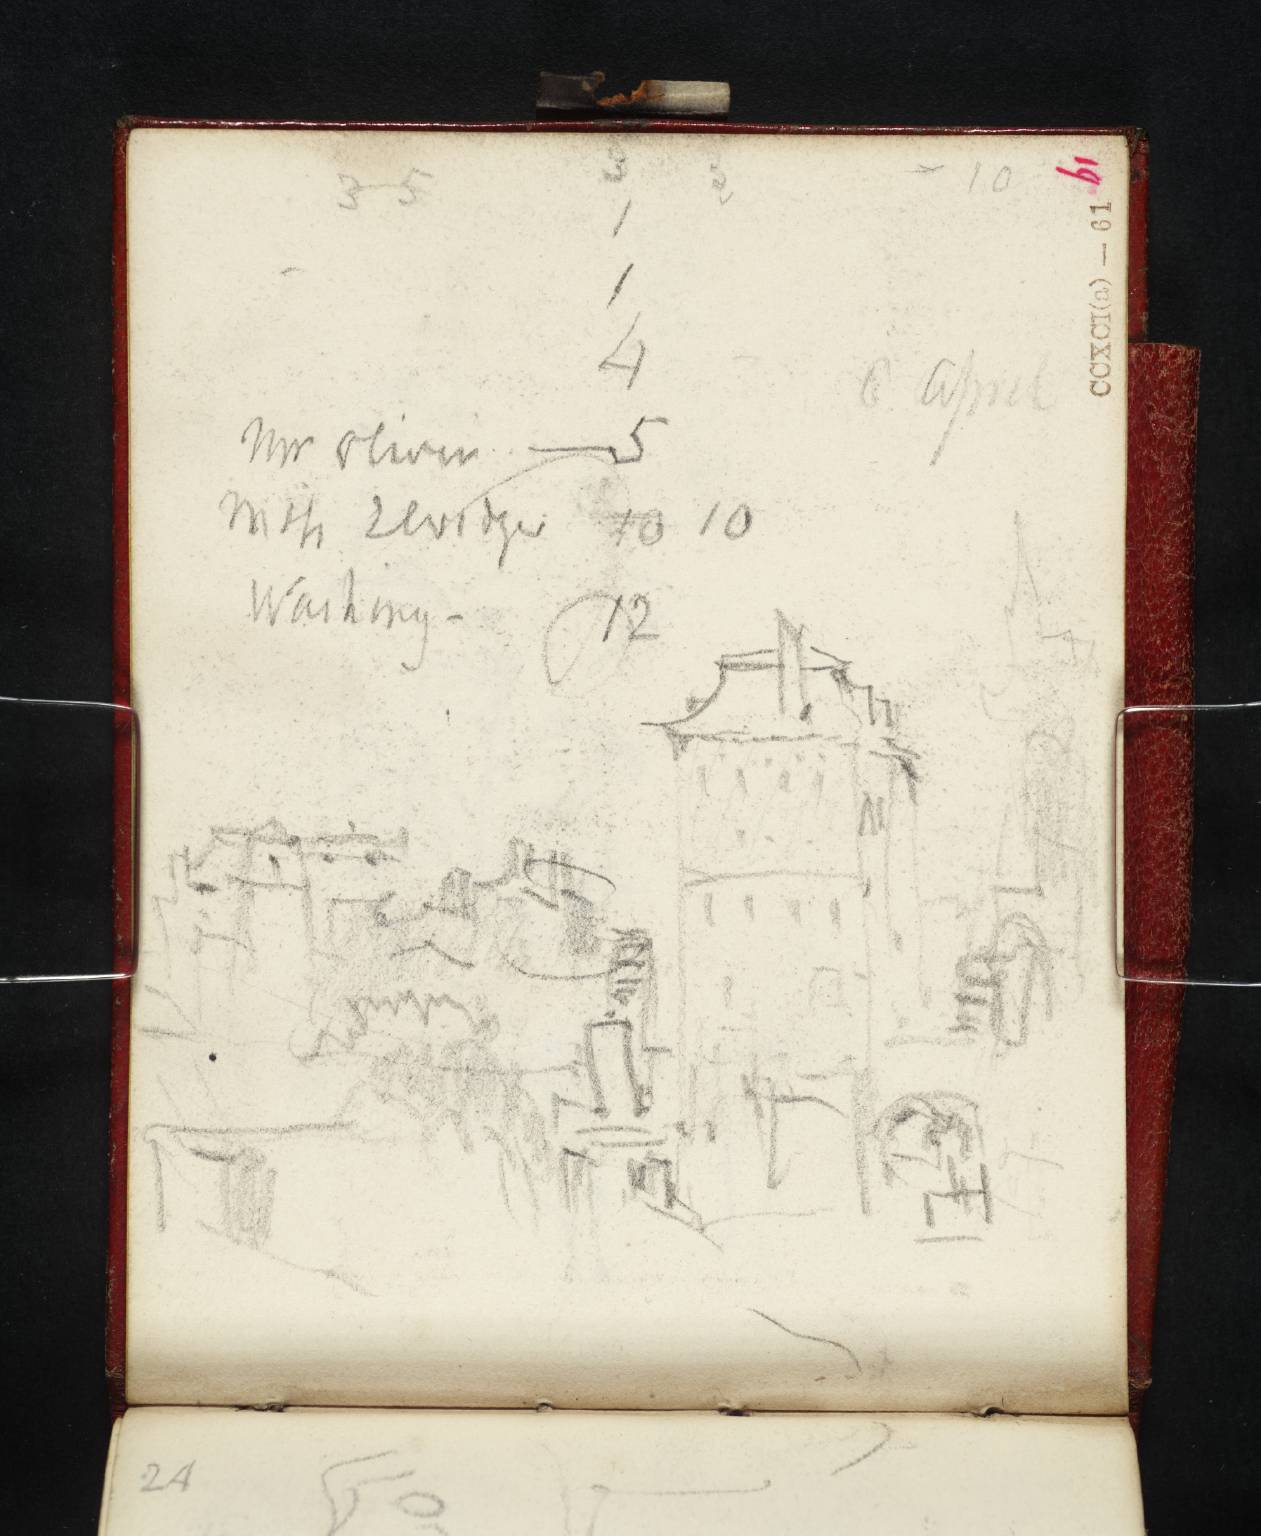 3 5 3 2 - 10
1
1
4
6 April
Mr Oliver — 5
10 10
Washing - 12
24
61
CCXCI(a) — 61